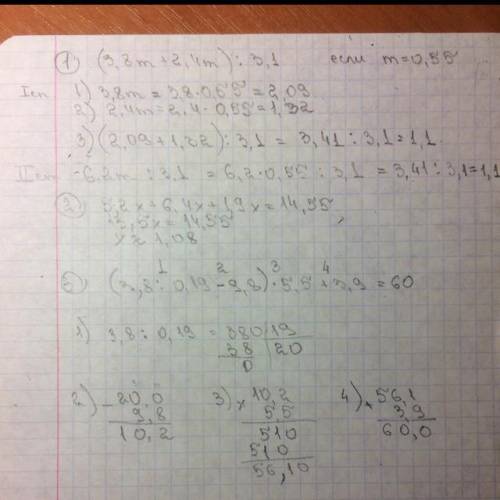 ① (3,8m + 2,4m) : 3,1 если m=0,55
I сп 1) 3,8m = 3,8·0,55 = 2,09
2) 2,4m = 2,4·0,55 = 1,32
3) (2,09 + 1,32) : 3,1 = 3,41 : 3,1 = 1,1
II сп 6,2m : 3,1 = 6,2·0,55 : 3,1 = 3,41 : 3,1 = 1,1
② 5,2x + 6,4x + 1,9x = 14,55
13,5x = 14,55
x ≈ 1,08
1 2 3 4
(3,8 : 0,19 - 9,8) · 5,5 + 3,9 = 60
1) 3,8 : 0,19 = 380 | 19
38 | 20
0
2) - 20,0 3) × 10,2 4) + 56,1
9,8 5,5 3,9
10,2 510 60,0
510
56,10